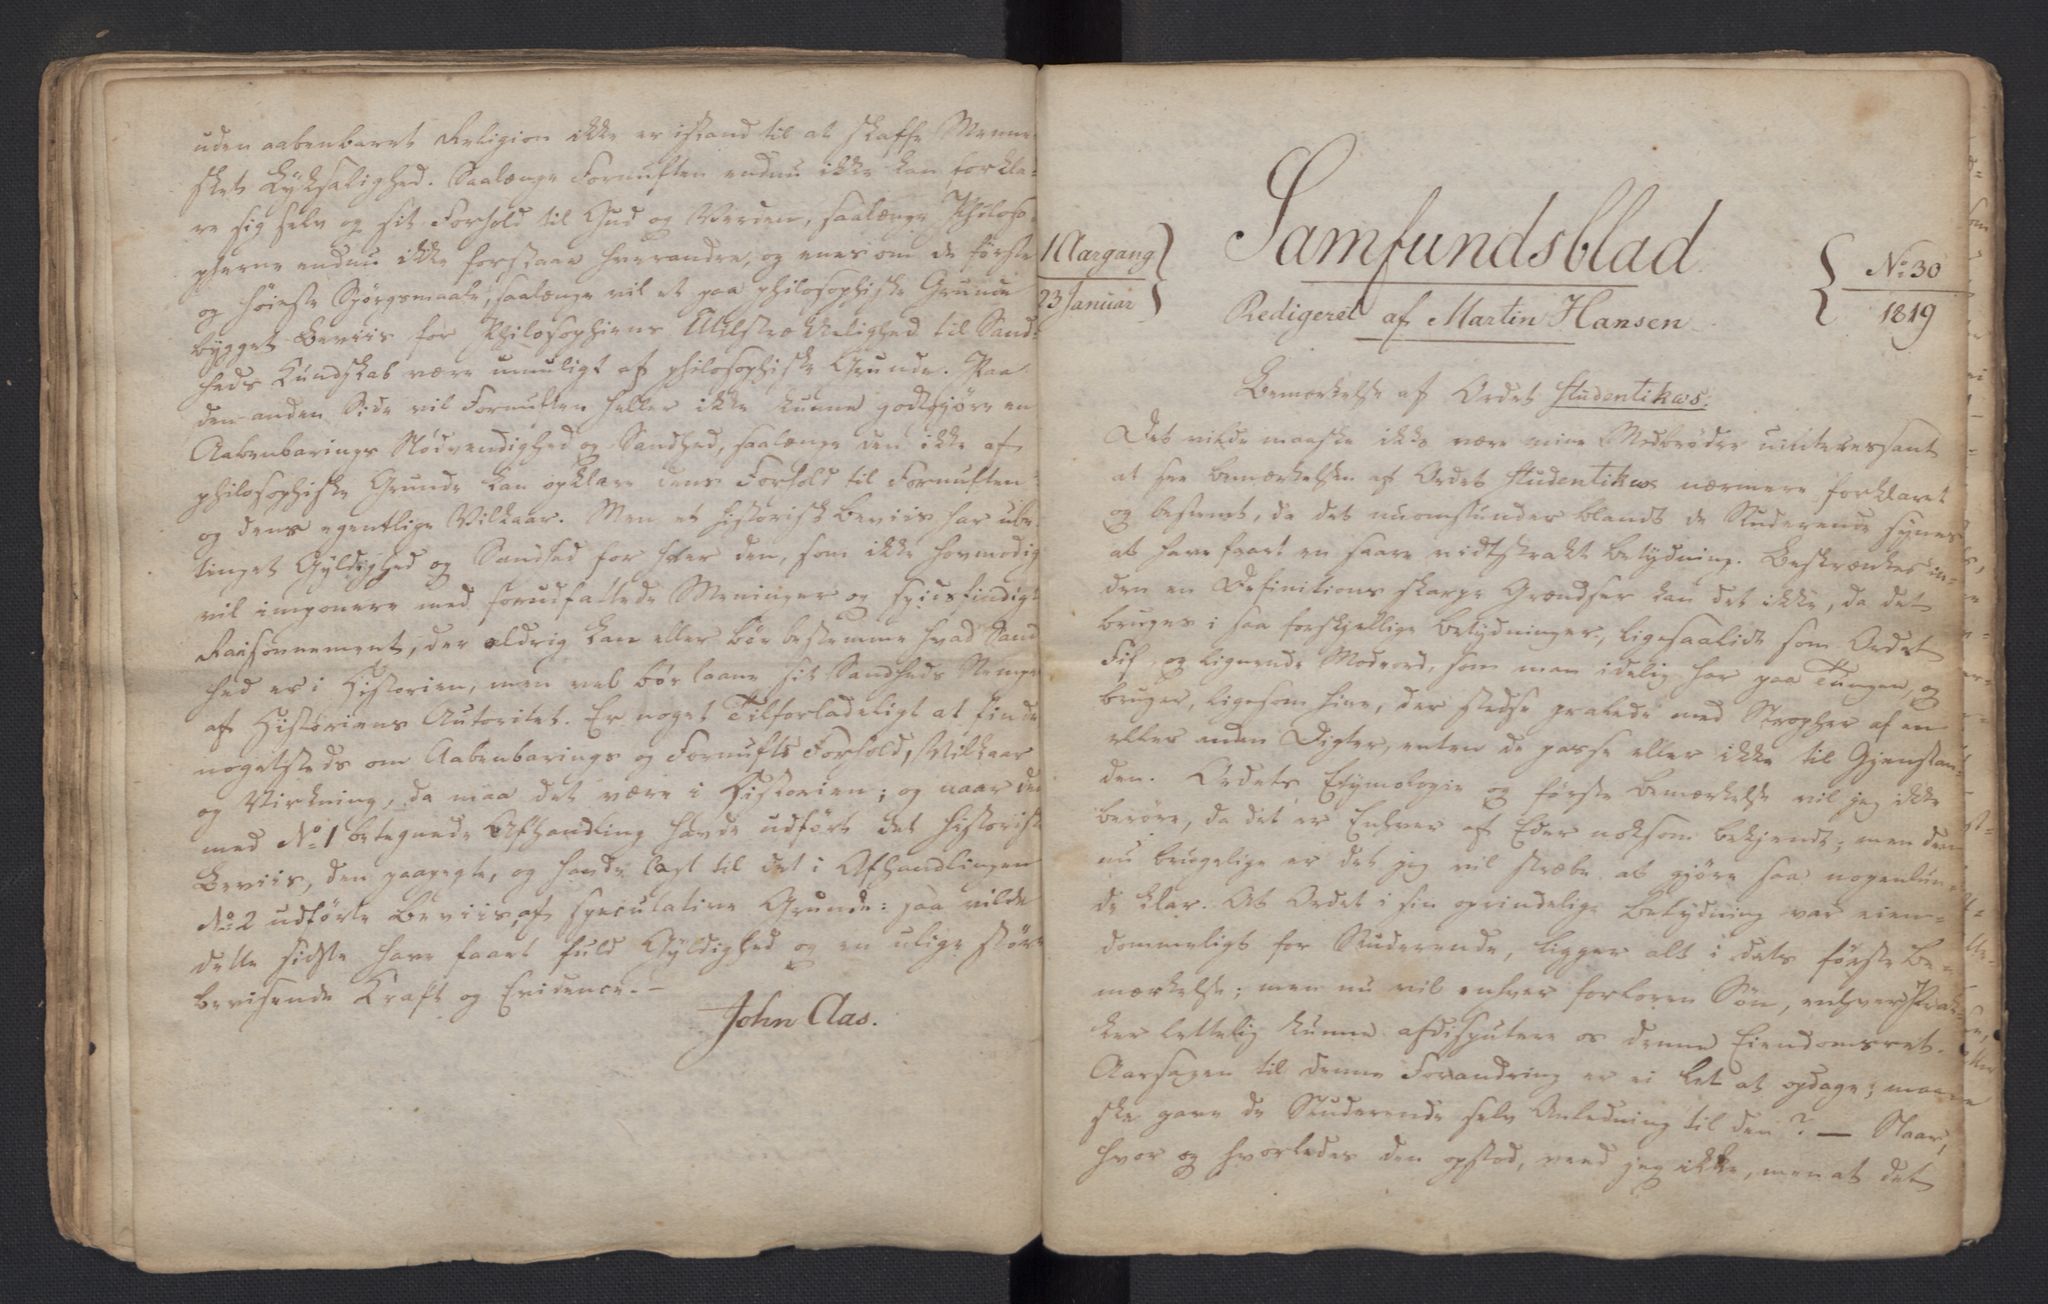 uden aabenbaret Religion ikke er istand til at skaffe Menne-
sket Lyksalighed. Saalænge Fornuften endnu ikke kan forkla-
re sig selv og sit Forhold til Gud og Verden, saalænge Philoso-
pherne endnu ikke forstaae hverandre, og enes om de første
og høieste Spørgsmaale, saalænge vil et paa philosophiske Grunde
bygget Beviis for Philosophiens Utilstrækkelighed til Sand-
heds Kundskab være umuligt af philosophiske Grunde. Paa
den anden Side vil Fornuften heller ikke kunne godtgjøre en
Aabenbarings Nødvendighed og Sandhed, saalænge den ikke af
philosophiske Grunde kan opklare dens Forhold til Fornuften
og dens egentlige Vilkaar. Men et historisk Beviis har ube-
tinget Gyldighed og Sandhed for hver den, som ikke hovmodig
vil imponere med forudfattede Meninger og spidsfindigt
Raisonnement, der aldrig kan eller bør bestemme hvad Sand
hed er i Historien, men vel bør laane sit Sandheds Stempel
af Historiens Autoritet. Er noget Tilforladeligt at finde
nogetsteds om Aabenbarings og Fornufts Forhold, Vilkaar
og Virkning, da maa det være i Historien; og naar den
med No 1 betegnede Afhandling havde udført det historiske
Beviis, den paapegte, og havde lagt til det i Afhandlingen
No 2 udførte Beviis, af speculative Grunde: saa vilde
dette sidste have faaet fuld Gyldighed og en ulige større
bevisende Kraft og Evidence. –
John Aas.
Samfundsblad
1 Aargang
23 Januar
No 30
1819
Redigeret af Martin Hansen
Bemærkelse af Ordet studentikos.
Det vilde maaske ikke være mine Medbrødre uinteressant
at see Bemærkelsen af Ordet studentikos nærmere forklaret
og bestemt, da det nuomstunder blandt de Studerende synes
at have faaet en saare vidtstrakt Betydning. Beskrænkes in-
den en Definitions skarpe Grændser kan det ikke, da det
bruges i saa forskjellige Betydninger, ligesaalidt som Ordet
Fif, og lignende Modeord, som man idelig har paa Tungen, og
bruger, ligesom hine, der stedse pralede med Stropher af en
eller anden Digter, enten de passe eller ikke til Gjenstan-
den. Ordets Etymologie og første Bemærkelse vil jeg ikke
berøre, da det er Enhver af Eder noksom bekjendt; men den
nu brugelige er det jeg vil stræbe at gjøre saa nogenlun-
de klar. At Ordet i sin oprindelige Betydning var eien-
dommeligt for Studerende, ligger alt i dets første Be-
mærkelse; men nu vil enhver forloren Søn, enhver Prak-
ker lettelig kunne afdisputere os denne Eiendomsret.
Aarsagen til denne Forandring er ei let at opdage; maa-
skee gave de Studerende selv Anledning til den? — Naar,
hvor og hvorledes den opstod, veed jeg ikke, men at det